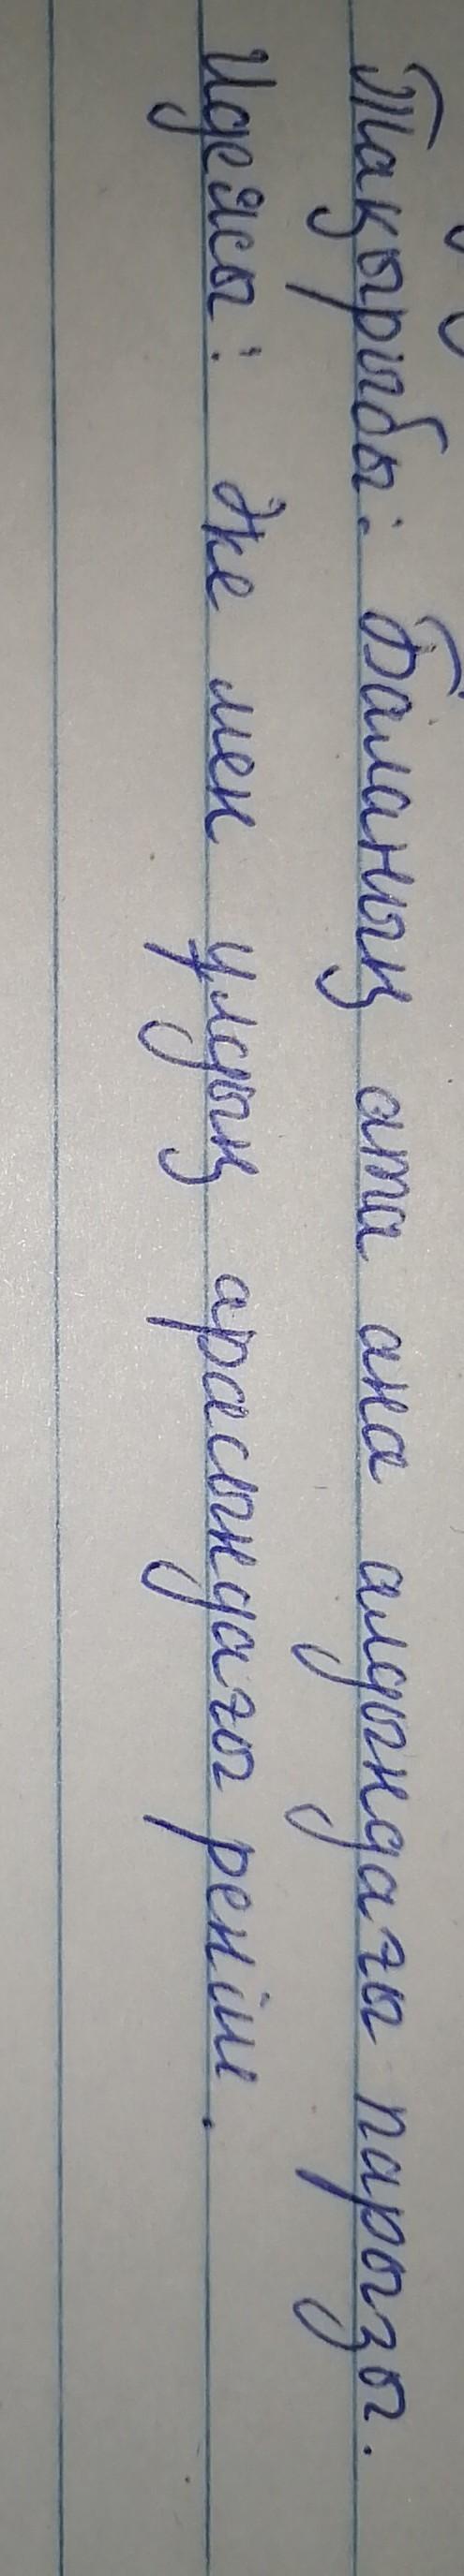 Тақырыбы: Баланың ата ана алдындағы парызы.
Идеясы: Әке мен ұлдың арасындағы реніш.